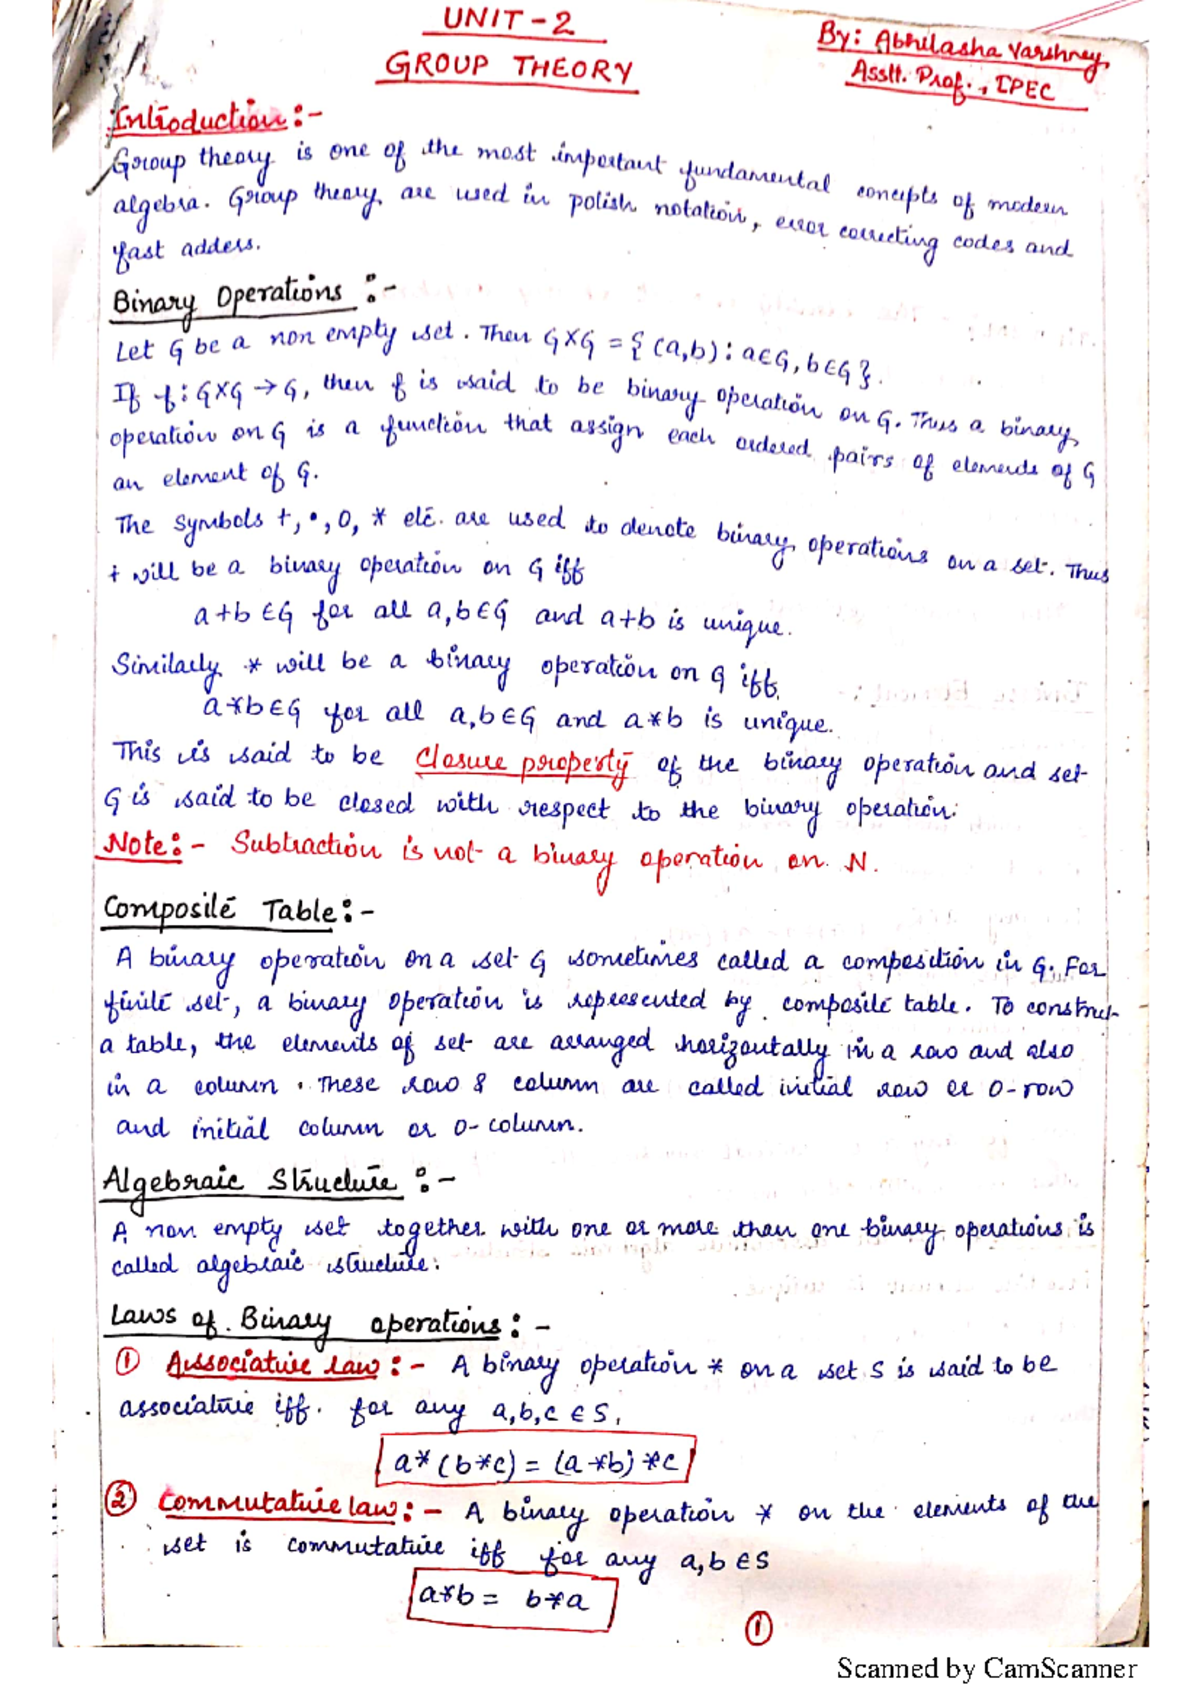 UNIT-2
GROUP THEORY
By: Abhilasha Varshney
Asstt. Prof., IPEC
Introduction:-
Group theory is one of the most important fundamental concepts of modern
algebra. Group theory are used in polish notation, error correcting codes and
fast adders.
Binary Operations :-
Let G be a non empty set. Then G×G = {(a,b) : a∈G, b∈G}.
If f: G×G → G, then f is said to be binary operation on G. Thus a binary
operation on G is a function that assign each ordered pairs of elements of G
an element of G.
The symbols +, •, 0, * etc. are used to denote binary operations on a set. Thus
+ will be a binary operation on G iff
a+b ∈G for all a,b∈G and a+b is unique.
Similarly * will be a binary operation on G iff.
a*b∈G for all a,b∈G and a*b is unique.
This is said to be Closure property of the binary operation and set
G is said to be closed with respect to the binary operation.
Note:- Subtraction is not a binary operation on N.
Composite Table:-
A binary operation on a set G sometimes called a composition in G. For
finite set, a binary operation is represented by composite table. To construct
a table, the elements of set are arranged horizontally in a row and also
in a column. These row & column are called initial row or 0-row
and initial column or 0-column.
Algebraic Structure :-
A non empty set together with one or more than one binary operations is
called algebraic structure.
Laws of Binary operations :-
① Associative law:- A binary operation * on a set S is said to be
associative iff. for any a,b,c ∈ S,
a*(b*c) = (a*b)*c
② Commutative law:- A binary operation * on the elements of the
set is commutative iff for any a,b ∈S
a*b = b*a
①
Scanned by CamScanner